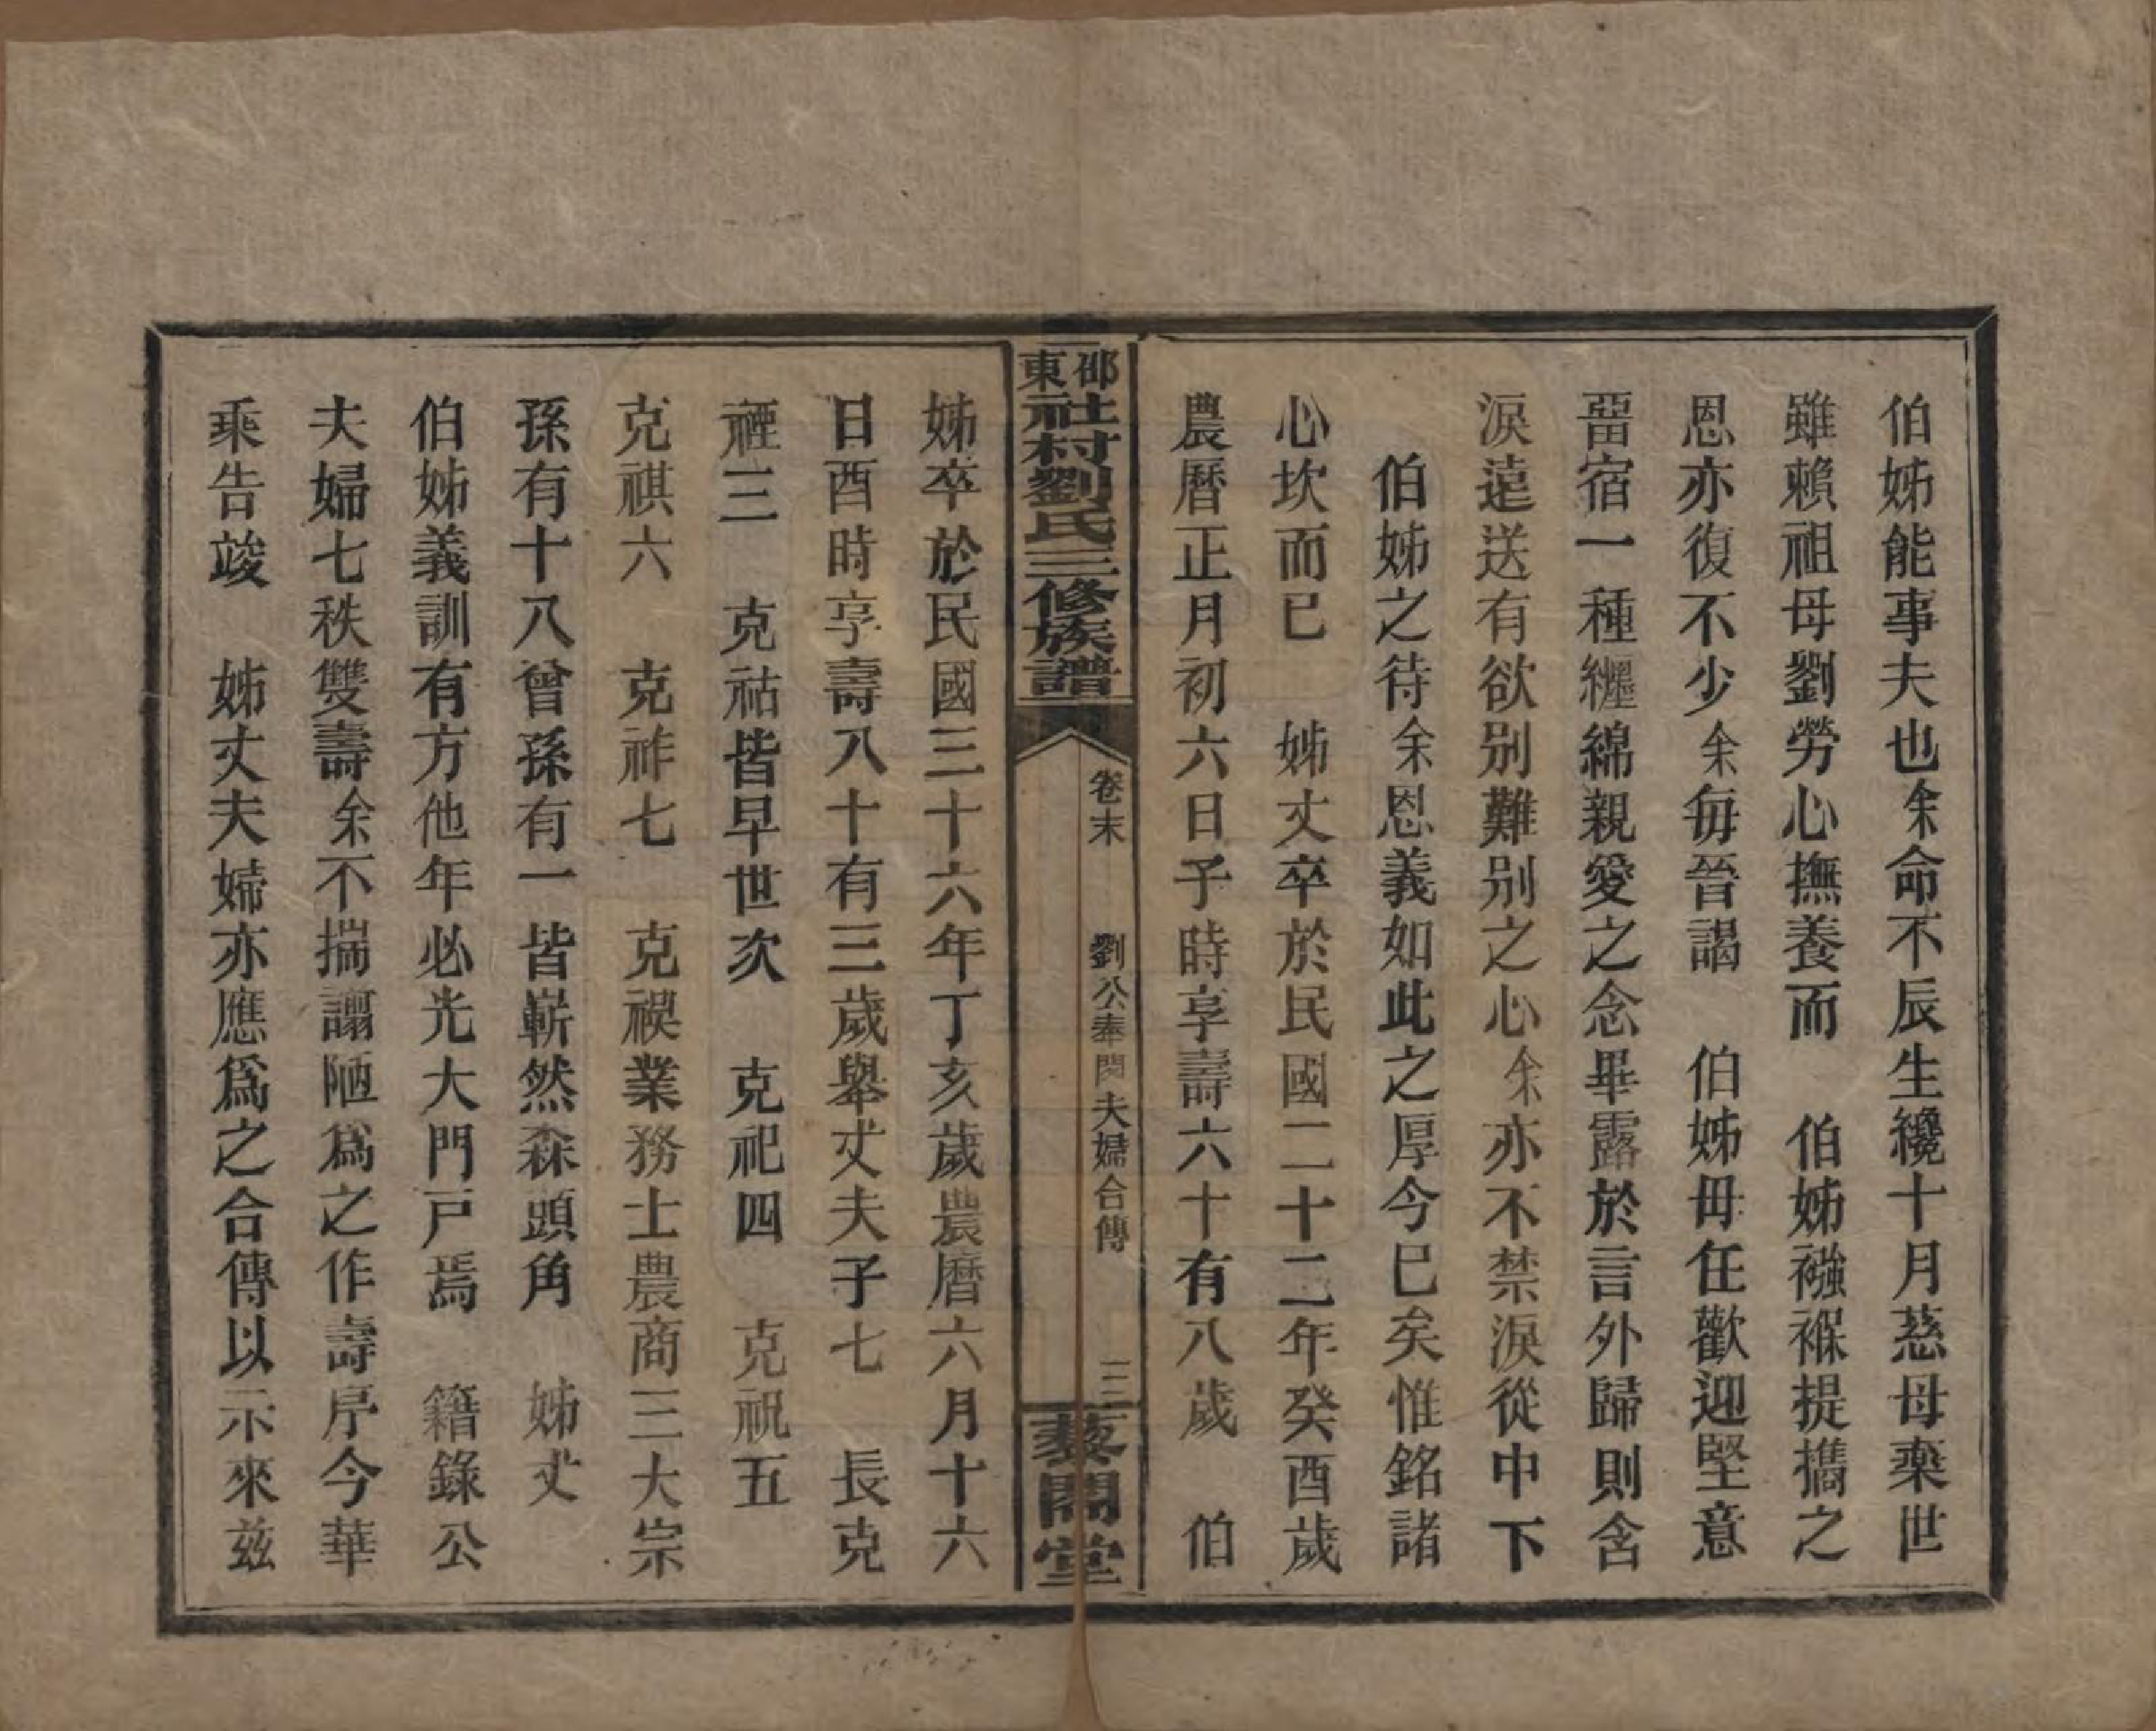 伯姊能事夫也余命不辰生纔十月慈母棄世
雖賴祖母劉勞心撫養而　伯姊襁褓提攜之
恩亦復不少余每晉謁　伯姊毋任歡迎堅意
畱宿一種纏綿親愛之念畢露於言外歸則含
淚遠送有欲别難别之心余亦不禁淚從中下
伯姊之待余恩義如此之厚今已矣惟銘諸
心坎而已　姊丈卒於民國二十二年癸酉歲
農曆正月初六日子時享壽六十有八歲　伯
邵東社村劉氏三修族譜
卷末　劉公奉閔夫婦合傳　三
藜閣堂
姊卒於民國三十六年丁亥歲農曆六月十六
日酉時享壽八十有三歲舉丈夫子七　長克
禋三　克祜皆早世次　克祀四　克祝五
克祺六　克祚七　克禊業務士農商三大宗
孫有十八曾孫有一皆嶄然森頭角　姊丈
伯姊義訓有方他年必光大門戸焉　籍錄公
夫婦七秩雙壽余不揣謭陋爲之作壽序今華
乘告竣　姊丈夫婦亦應爲之合傳以示來兹